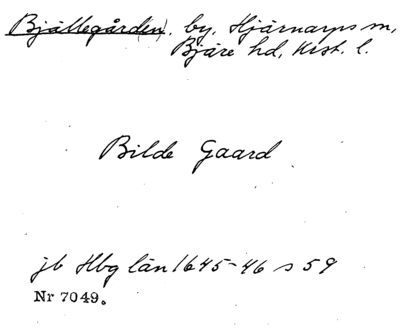 Bjällegård(en), by, Hjärnarps sn,
Bjäre hd, Krist. l.
Bilde Gaard
jb Hbg län 1645-46 s 59
Nr 7049.